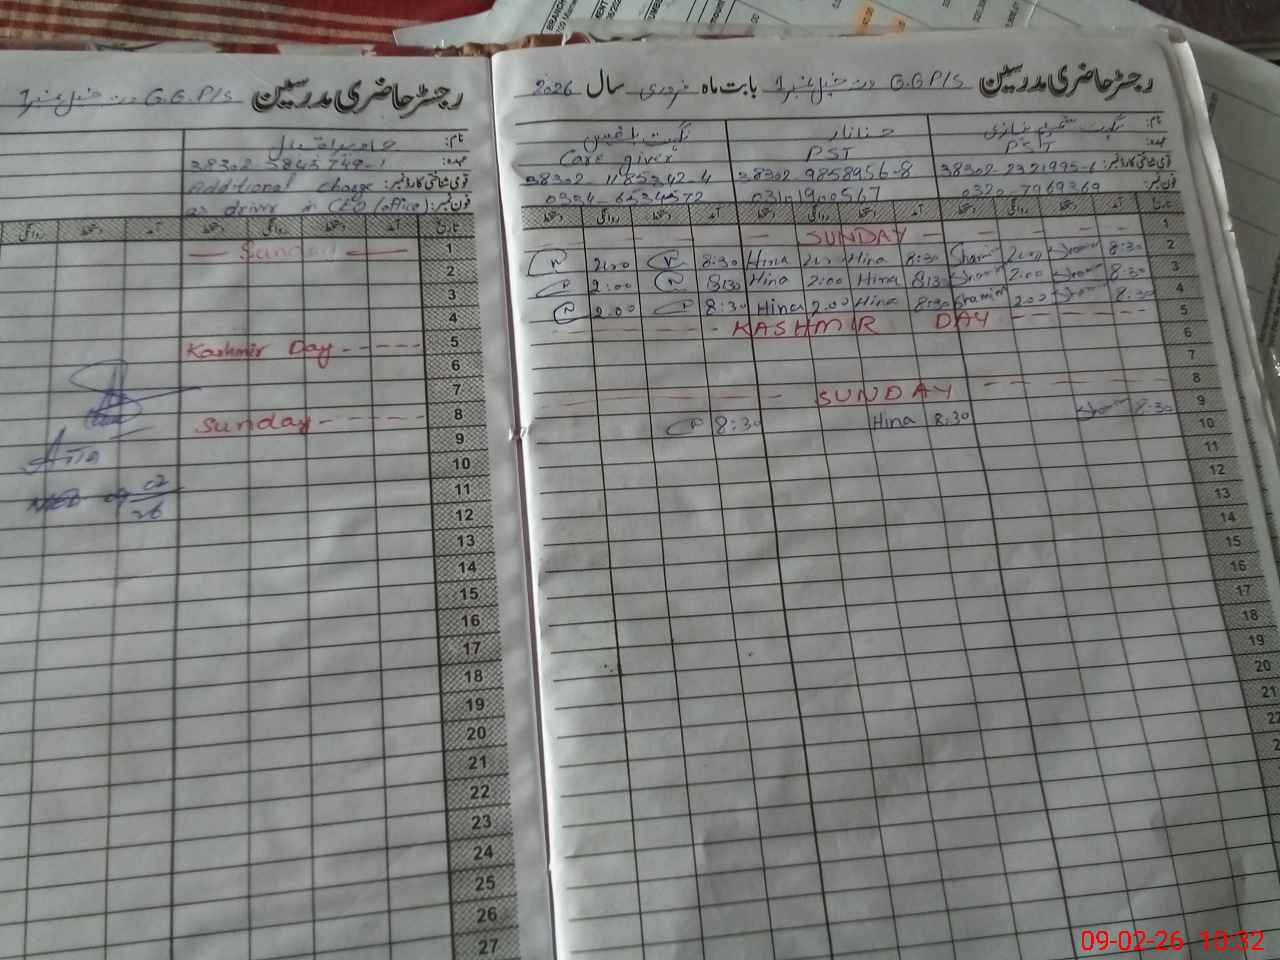 رجسٹر حاضری مدرسین G.G.P/S درت خیل نمبر 1 بابت ماہ فروری سال 2026
نام:
عہدہ: PST PST Care giver
قومی شناختی کارڈ نمبر: 38302-2321995-6 38302 9858956-8 38302-1185342-4
فون نمبر: 0320-7969369 03101900567 0334-6534572
تاریخ آمد دستخط روانگی دستخط آمد دستخط روانگی دستخط آمد دستخط روانگی دستخط
1 SUNDAY
2 8:30 2:00 8:30 Hina 2:00 Hina 8:30 2:00
3 8:30 2:00 8:30 Hina 2:00 Hina 8:30 2:00
4 8:30 2:00 8:30 Hina 2:00 Hina 8:30 2:00
5 KASHMIR DAY
6
7
8 SUNDAY
9
10 8:30 8:30 Hina 8:30
11
12
13
14
15
16
17
18
19
20
21
22
رجسٹر حاضری مدرسین G.G.P/S درت خیل نمبر 1
نام:
عہدہ: 38302-3843749-1
قومی شناختی کارڈ نمبر: Additional charge
فون نمبر: as driver in CEO (office)
تاریخ آمد دستخط روانگی دستخط آمد دستخط روانگی
1 Sunday
2
3
4
5 Kashmir Day
6
7
8 Sunday
9
10
11
12
13
14
15
16
17
18
19
20
21
22
23
24
25
26
27
02
26
09-02-26 10:32